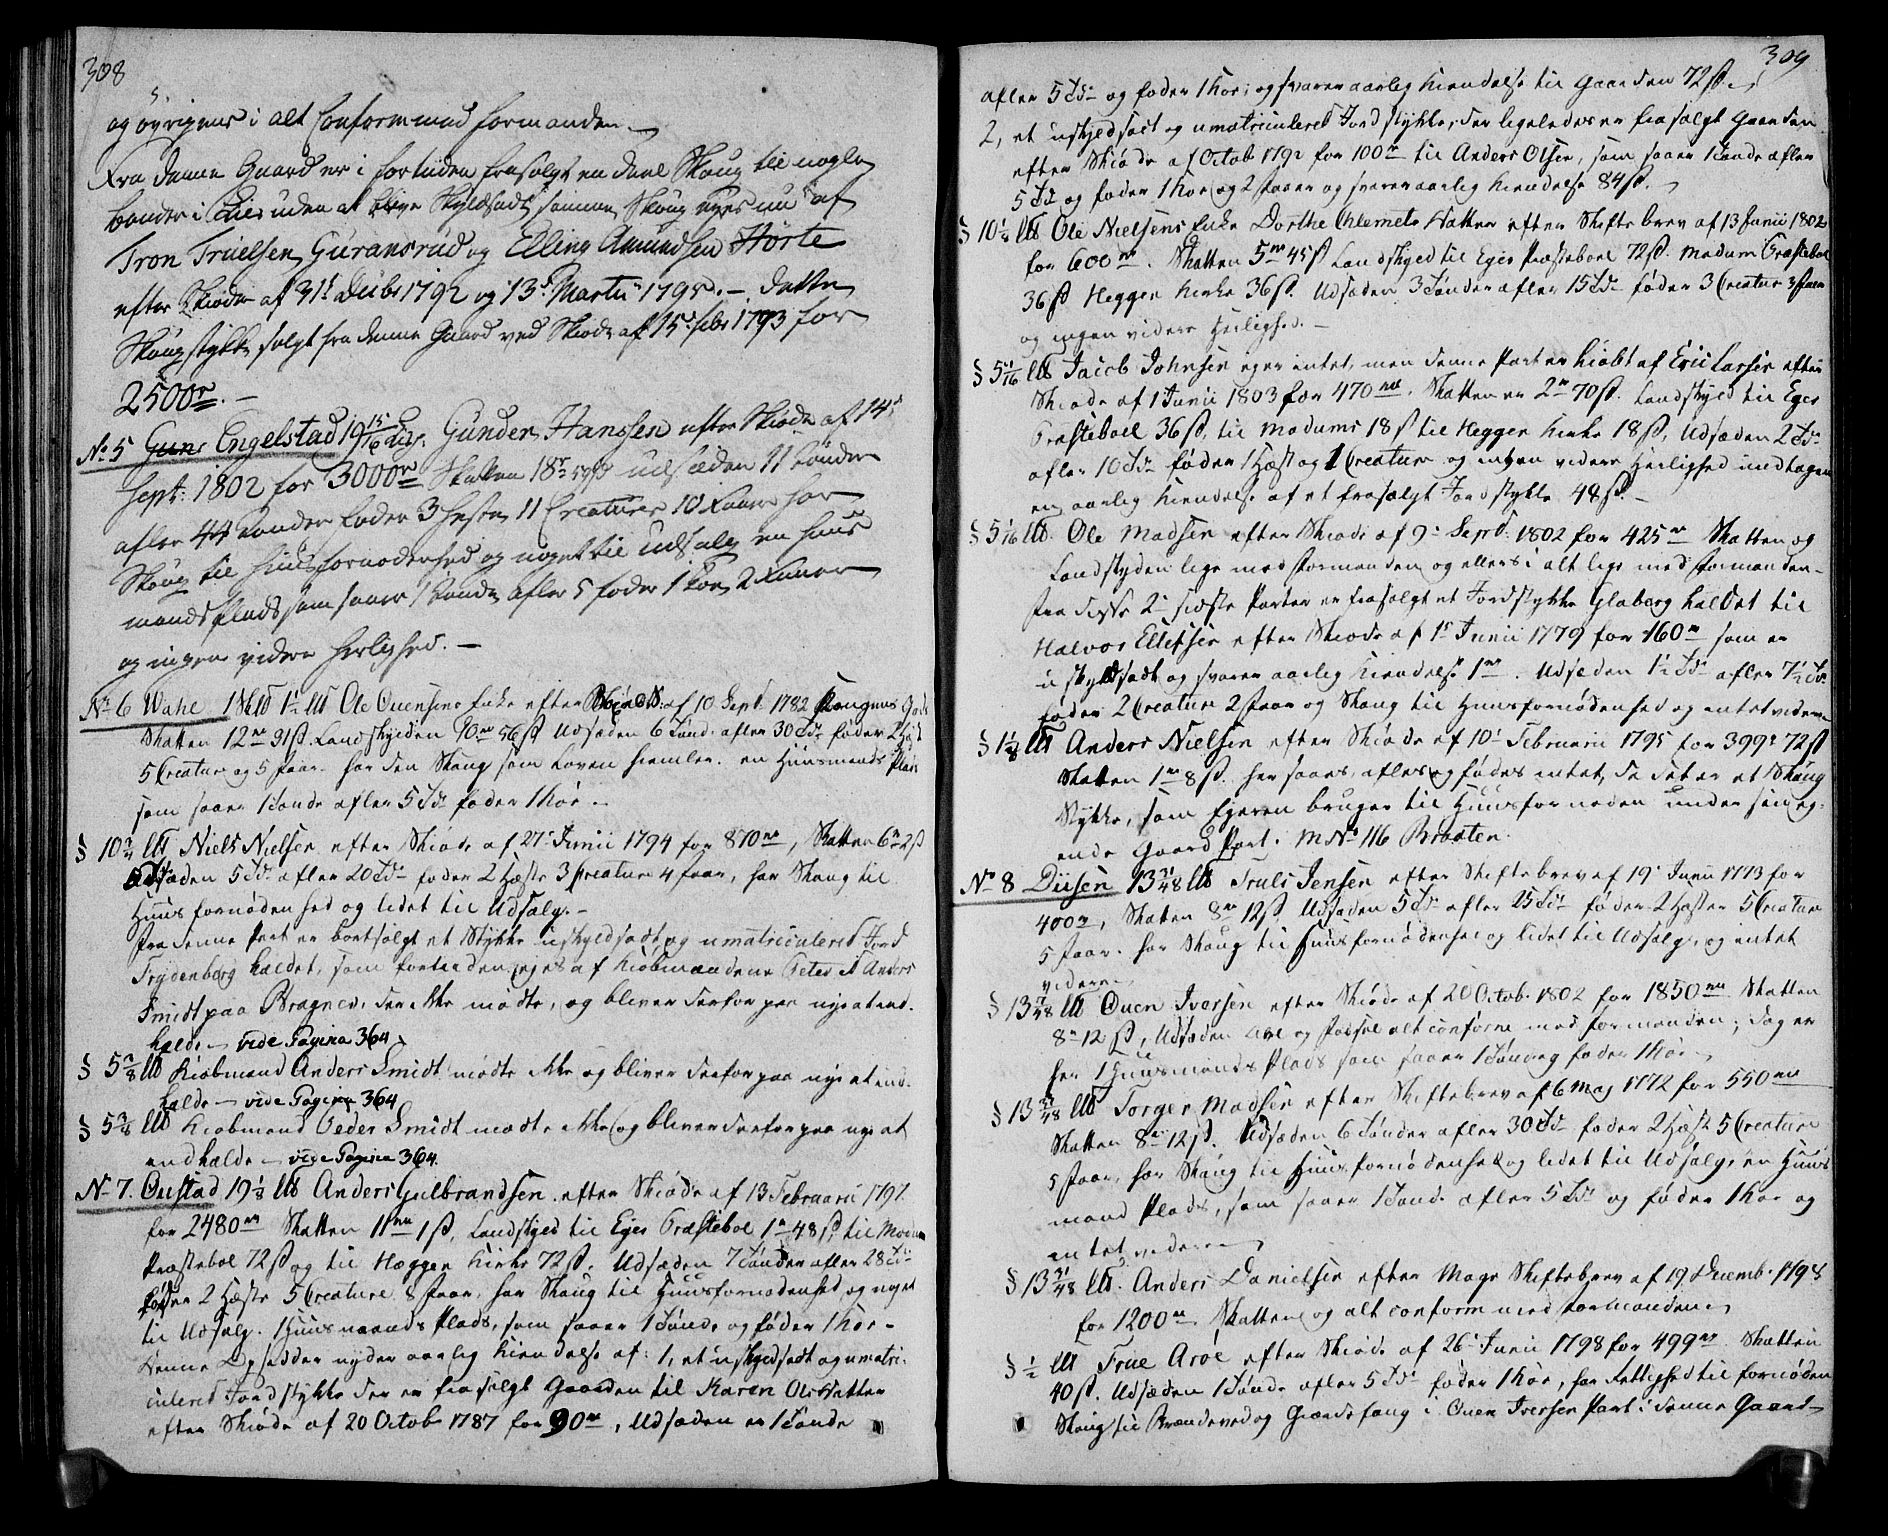 308
og øvrigens i alt Conform med formanden —
Fra denne Gaard er i fortiden frasolgt en deel Skoug til nogle
bønder i Lier uden at blive Skyldsadt samme Skoug eyes nu af
Tron Truelsen Guransrud og Elling Amundsen Hørte
efter Skiøder af 31t Debr 1792 og 13d Martii 1795. — dette
Skougstykke solgt fra denne Gaard ved Skiøde af 15d febr 1793 for
2500r. —
No 5 Guns Engelstad 19 15/16 Lispd. Gunder Hanssen efter Skiøde af 14d
Sept: 1802 for 3000r Skatten 18r udsæden 11 tønder
afler 44 tønder føder 3 heste 11 Creature 10 faar har
Skoug til huusfornødenhed og noget til udsalg en huus
mands plads som saaer 1 tønde afler 5 føder 1 koe 2 faar
og ingen videre herlighed. —
No 6 Wahe 1 Skd 1½ lb Ole Ouensens Enke efter Skiøde af 10 Sept. 1782 Kongens Gods
Skatten 12 mr 31 ß. Landskylden 90 mr 56 ß Udsæden 6 Tønd: afler 30 Td føder 2 Hæst
5 Creatur og 5 faar. har den Skoug som Loven hiemler. en Huusmands Plads
som saaer 1 Tønde afler 5 Td føder 1 koe. —
§ 10¾ lb Niels Nielsen efter Skiøde af 27 Junii 1794 for 870 mr, Skatten 6 r 2 ß
Udsæden 5 Td afler 20 Td føder 2 Hæste 3 Creature 4 faar, har Skoug til
Huusfornødenhed og lidet til Udsalg. —
fra denne Part er bortsolgt et Stykke uskyldsadt og umatriculeret Jord
Frydenberg kaldet, som fortiden eyes af Kiøbmændene Peter & Anders
Smidt paa Bragnes, der ikke mødte, og bliver derfor paa nye at end.
halde — vide Pagina 364
§ 5 3/8 lb Kiøbmand Anders Smidt mødte ikke og bliver derfor paa nye at end.
halde — vide Pagina 364
§ 5 3/8 lb Kiøbmand Peder Smidt mødte ikke og bliver derfor paa nye at
endhalde — vide Pagina 364.
No 7. Oustad 19½ lb Anders Gulbrandsen efter Skiøde af 13 Februarii 1797.
for 2480 mr Skatten 11 mr 1 ß, Landskyld til Eger Præstebol 1 r 48 ß, til Modum
Præstebol 72 ß og til Hegger Kirke 72 ß. Udsæden 7 Tønder afler 28 Td
føder 2 Hæste 5 Creature 8 faar, har Skoug til Huusfornødenhed og noget
til Udsalg. 1 Huusmands Plads, som saaer 1 Tønde og føder 1 koe —
Denne Opsidder nyder aarlig Kiendelse af: 1, et uskyldsadt og umatri-
culeret Jordstykke der er frasolgt Gaarden til Karen Olsdatter
efter Skiøde af 20 Octobr 1787 for 90 mr, Udsæden er 1 Tønde
309
afler 5 Td og føder 1 koe; og svarer aarlig Kiendelse til Gaarden 72 ß. —
2, et uskyldsadt og umatriculeret Jordstykke, der ligeledes er frasolgt Gaarden
efter Skiøde af Octob 1792 for 100 r til Anders Olsen, som saaer 1 Tønde afler
5 Td og føder 1 koe og 2 faar og svarer aarlig Kiendelse 84 ß. —
§ 10⅛ lb Ole Nielsens Enke Dorthe Chlemets Datter efter Skifte brev af 13 Junii 1802
for 600 mr. Skatten 5 mr 45 ß Landskyld til Eger Præstebol 72 ß. Modum Præstebol
36 ß Hegger Kirke 36 ß. Udsæden 3 Tønder afler 15 Td føder 3 Creatur 3 faar
og ingen videre Herlighed. —
§ 5 1/16 lb Jacob Johnsen eyer intet, men denne Part er kiøbt af Eric Larsen efter
Skiøde af 1 Junii 1803 for 470 mr. Skatten er 2 r 70 ß. Landskyld til Eger
Præstebol 36 ß, til Modums 18 ß til Hegger Kirke 18 ß, Udsæden 2 Td
afler 10 Td føder 1 Hæst og 1 Creature og ingen videre Herlighed undtagen
en aarlig Kiendelse af et frasolgt Jordstykke 48 ß. —
§ 5 1/16 lb. Ole Madsen efter Skiøde af 9 Septr. 1802 for 425 mr Skatten og
Landskylden lige med formanden og ellers i alt lige med formanden —
fra disse 2 sidste Parter er frasolgt et Jordstykke Glaberg kaldet til
Halvor Ellefsen efter Skiøde af 1 Junii 1779 for 160 mr som er
uskyldsadt og svarer aarlig Kiendelse 1 mr. Udsæden 1½ Td afler 7½ Td
føder 2 Creatur 2 faar og Skoug til Huusfornødenhed og intet videre —
§ 1⅛ lb Anders Nielsen efter Skiøde af 10 Februarii 1795 for 399 r 72 ß
Skatten 1 mr 8 ß. her saaes, afles og fødes intet, da det er et Skoug
Stykke, som Eyeren bruger til Huusfornøden under sin eg-
ende Gaard Part. M No 116 Braaten.
No 8 Diisen 13 31/48 lb Truls Jensen efter Skiftebrev af 19 Junii 1773 for
400 r, Skatten 8 mr 12 ß, Udsæden 5 Td afler 25 Td føder 2 Hæster 5 Creature
5 faar. har Skoug til Huusfornødenhed og lidet til Udsalg, og intet
videre —
§ 13 7/48 lb Ouen Iversen efter Skiøde af 20 Octob. 1802 for 1850 mr Skatten
8 r 12 ß, Udsæden Avl og fødsel alt conforme med formanden; dog er
her 1 Huusmands Plads som saaer 1 Tønde og føder 1 koe —
§ 13 31/48 lb Torger Madsen efter Skiftebrev af 6 Maj 1772 for 550 mr
Skatten 8 r 12 ß. Udsæden 6 Tønder afler 30 Td føder 2 Hæst 5 Creature
5 faar, har Skoug til Huusfornødenhed og lidet til Udsalg, en Huus
mand Plads, som saaer 1 Tønde afler 5 Td og føder 1 koe og
intet videre —
§ 13 31/48 lb. Anders Danielsen efter Mage Skiftebrev af 19 Decemb. 1798
for 1200 mr Skatten og alt conform med formanden —
§ ½ lb True Aroe efter Skiøde af 26 Junii 1798 for 499 mr Skatten
40 ß. Udsæden 1 Tønde afler 5 Td føder 1 koe, har Rettighed til fornøden
Skoug til Brændeved og Giærdsfang i Ouen Iversens Part i denne Gaard —